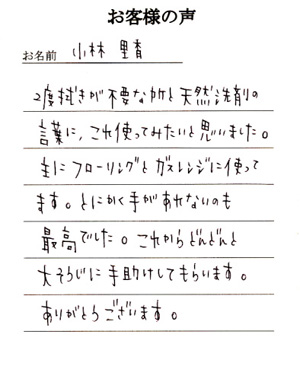 お客様の声
お名前 小林 里育
2度拭きが不要な所と天然洗剤の
言葉に、これ使ってみたいと思いました。
主にフローリングとガスレンジに使って
ます。とにかく手があれないのも
最高でした。これからどんどんと
大そうじに手助けしてもらいます。
ありがとうございます。